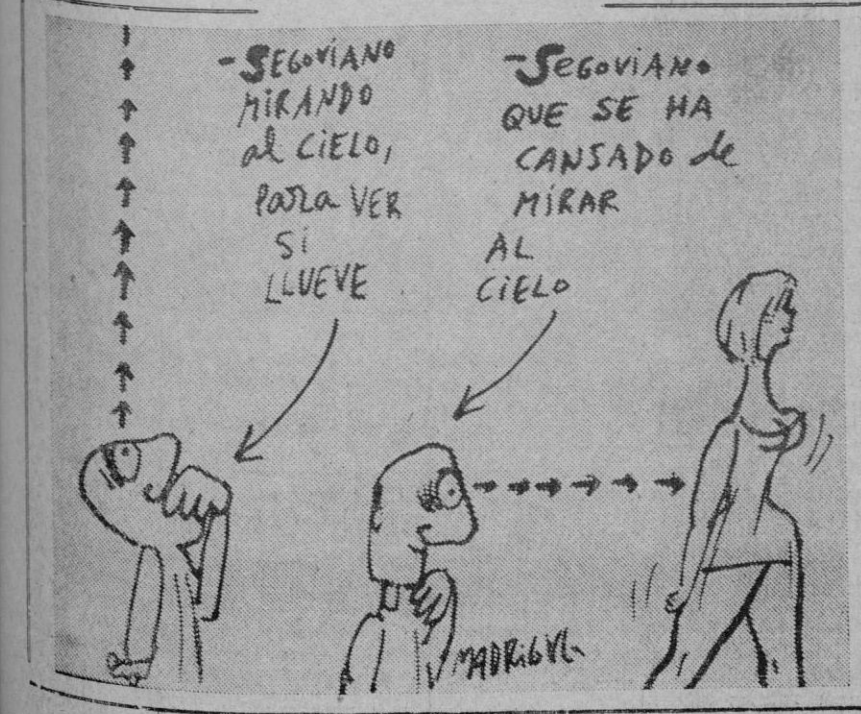 -SEGOVIANO
MIRANDO
al CIELO,
PARA VER
SI
LLUEVE
-SEGOVIANO
QUE SE HA
CANSADO de
MIRAR
AL
CIELO